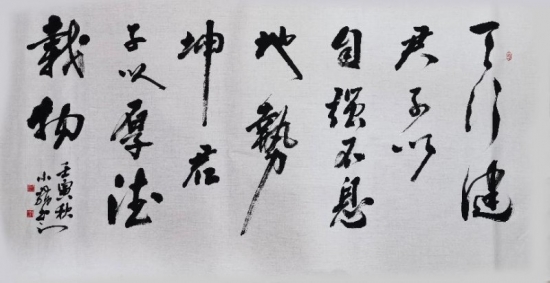 天行健
君子以
自强不息
地势
坤君
子以厚德
载物
壬寅秋
小